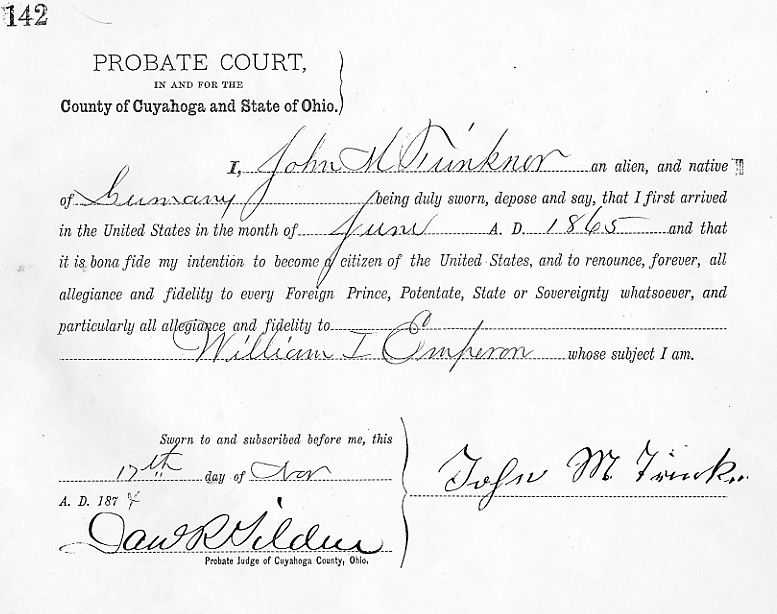 142
PROBATE COURT,
IN AND FOR THE
County of Cuyahoga and State of Ohio.
I, John M Trinkner an alien, and native
of Germany being duly sworn, depose and say, that I first arrived
in the United States in the month of June A. D. 1865 and that
it is bona fide my intention to become a citizen of the United States, and to renounce, forever, all
allegiance and fidelity to every Foreign Prince, Potentate, State or Sovereignty whatsoever, and
particularly all allegiance and fidelity to
William I Emperor whose subject I am.
Sworn to and subscribed before me, this
17th day of Nov
A. D. 187
John M. Trinkn
Dan R Tilden
Probate Judge of Cuyahoga County, Ohio.